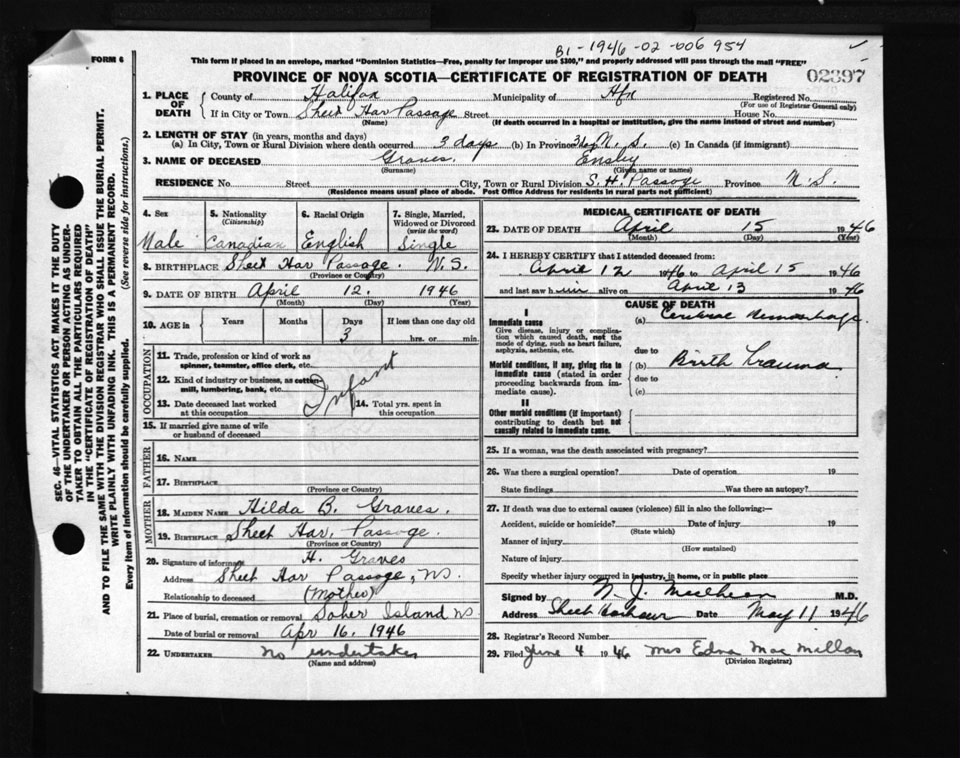 B1-1946-02-006954
FORM 6
This form if placed in an envelope, marked "Dominion Statistics—Free, penalty for improper use $300," and properly addressed will pass through the mail "FREE"
PROVINCE OF NOVA SCOTIA—CERTIFICATE OF REGISTRATION OF DEATH
02397
1. PLACE OF DEATH
County of Halifax Municipality of Hfx Registered No.
(For use of Registrar General only)
If in City or Town Sheet Har Passage Street House No.
(Name) (If death occurred in a hospital or institution, give the name instead of street and number)
2. LENGTH OF STAY (in years, months and days)
(a) In City, Town or Rural Division where death occurred 3 days (b) In Province N.S. (c) In Canada (if immigrant)
3. NAME OF DECEASED Graves. Ensley
(Surname) (Given name or names)
RESIDENCE No. Street City, Town or Rural Division S. H. Passage Province N.S.
(Residence means usual place of abode. Post Office Address for residents in rural parts not sufficient)
4. Sex
Male
5. Nationality
(Citizenship)
Canadian
6. Racial Origin
English
7. Single, Married, Widowed or Divorced
(write the word)
Single
8. BIRTHPLACE Sheet Har Passage. N.S.
(Province or Country)
9. DATE OF BIRTH April 12. 1946
(Month) (Day) (Year)
10. AGE in
Years Months Days If less than one day old
3 hrs. or min.
OCCUPATION
11. Trade, profession or kind of work as spinner, teamster, office clerk, etc.
12. Kind of industry or business, as cotton-mill, lumbering, bank, etc.
Infant
13. Date deceased last worked at this occupation
14. Total yrs. spent in this occupation
15. If married give name of wife or husband of deceased
FATHER
16. NAME
17. BIRTHPLACE
(Province or Country)
MOTHER
18. MAIDEN NAME Hilda B. Graves.
19. BIRTHPLACE Sheet Har. Passage.
(Province or Country)
20. Signature of informant H. Graves
Address Sheet Har Passage, NS.
Relationship to deceased (Mother)
21. Place of burial, cremation or removal Sober Island NS
Date of burial or removal Apr 16. 1946
22. UNDERTAKER no undertaker
(Name and address)
MEDICAL CERTIFICATE OF DEATH
23. DATE OF DEATH April 15 1946
(Month) (Day) (Year)
24. I HEREBY CERTIFY that I attended deceased from:
April 12 1946 to April 15 1946
and last saw him alive on April 13 1946
CAUSE OF DEATH
I
Immediate cause
Give disease, injury or complication which caused death, not the mode of dying, such as heart failure, asphyxia, asthenia, etc.
(a) Cerebral Hemorrhage.
due to
Morbid conditions, if any, giving rise to immediate cause (stated in order proceeding backwards from immediate cause).
(b) Birth Trauma
due to
(c)
II
Other morbid conditions (if important) contributing to death but not causally related to immediate cause.
25. If a woman, was the death associated with pregnancy?
26. Was there a surgical operation? Date of operation 19
State findings Was there an autopsy?
27. If death was due to external causes (violence) fill in also the following:—
Accident, suicide or homicide? Date of injury 19
(State which)
Manner of injury
(How sustained)
Nature of injury
Specify whether injury occurred in industry, in home, or in public place
Signed by M.D.
Address Sheet Harbour Date May 11 1946
28. Registrar's Record Number
29. Filed June 4 1946 Mrs Edna MacMillan
(Division Registrar)
SEC. 46—VITAL STATISTICS ACT MAKES IT THE DUTY
OF THE UNDERTAKER OR PERSON ACTING AS UNDER-
TAKER TO OBTAIN ALL THE PARTICULARS REQUIRED
IN THE "CERTIFICATE OF REGISTRATION OF DEATH"
AND TO FILE THE SAME WITH THE DIVISION REGISTRAR WHO SHALL ISSUE THE BURIAL PERMIT.
WRITE PLAINLY WITH UNFADING INK. THIS IS A PERMANENT RECORD.
Every item of information should be carefully supplied. (See reverse side for instructions.)